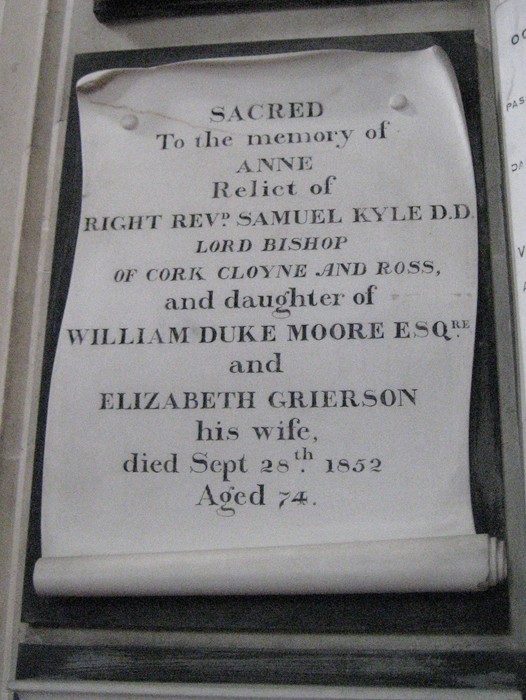 SACRED
To the memory of
ANNE
Relict of
RIGHT REVD. SAMUEL KYLE D.D.
LORD BISHOP
OF CORK CLOYNE AND ROSS,
and daughter of
WILLIAM DUKE MOORE ESQRE.
and
ELIZABETH GRIERSON
his wife,
died Sept 28th. 1852
Aged 74.